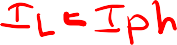 I_L = I_ph